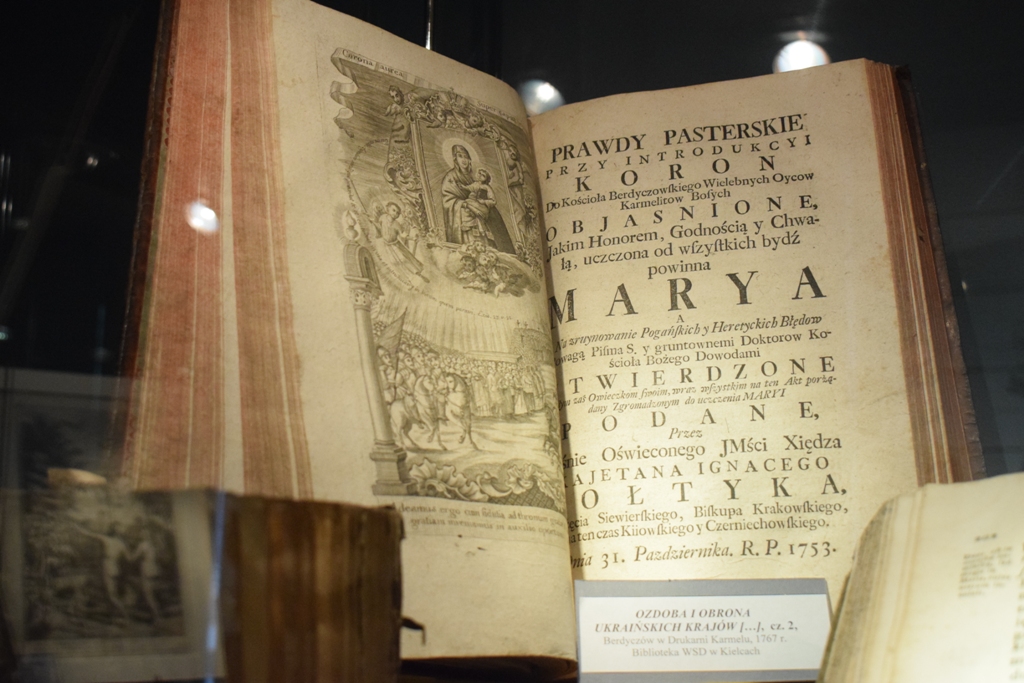 Corona Aurea
PRAWDY PASTERSKIE
PRZY INTRODUKCYI
KORON
Do Kościoła Berdyczowſkiego Wielebnych Oycow
Karmelitow Boſych
OBJASNIONE,
Jakim Honorem, Godnością y Chwa-
łą, uczczona od wſzyſtkich bydź
powinna
MARYA
A
Na zruynowanie Pogańſkich y Heretyckich Błędow
Powagą Piſma S. y gruntownemi Doktorow Ko-
ścioła Bożego Dowodami
TWIERDZONE
zaś Owieczkom ſwoim, wraz wſzyſtkim na ten Akt porżą-
dany Zgromadzonym do uczczenia MARYI
PODANE,
Przez
śnie Oświeconego JMści Xiędza
AJETANA IGNACEGO
OŁTYKA,
ęcia Siewierſkiego, Biſkupa Krakowſkiego,
a ten czas Kiiowſkiego y Czerniechowſkiego.
nia 31. Pazdziernika. R. P. 1753.
OZDOBA I OBRONA
UKRAIŃSKICH KRAJÓW [...], cz. 2,
Berdyczów w Drukarni Karmelu, 1767 r.
Biblioteka WSD w Kielcach